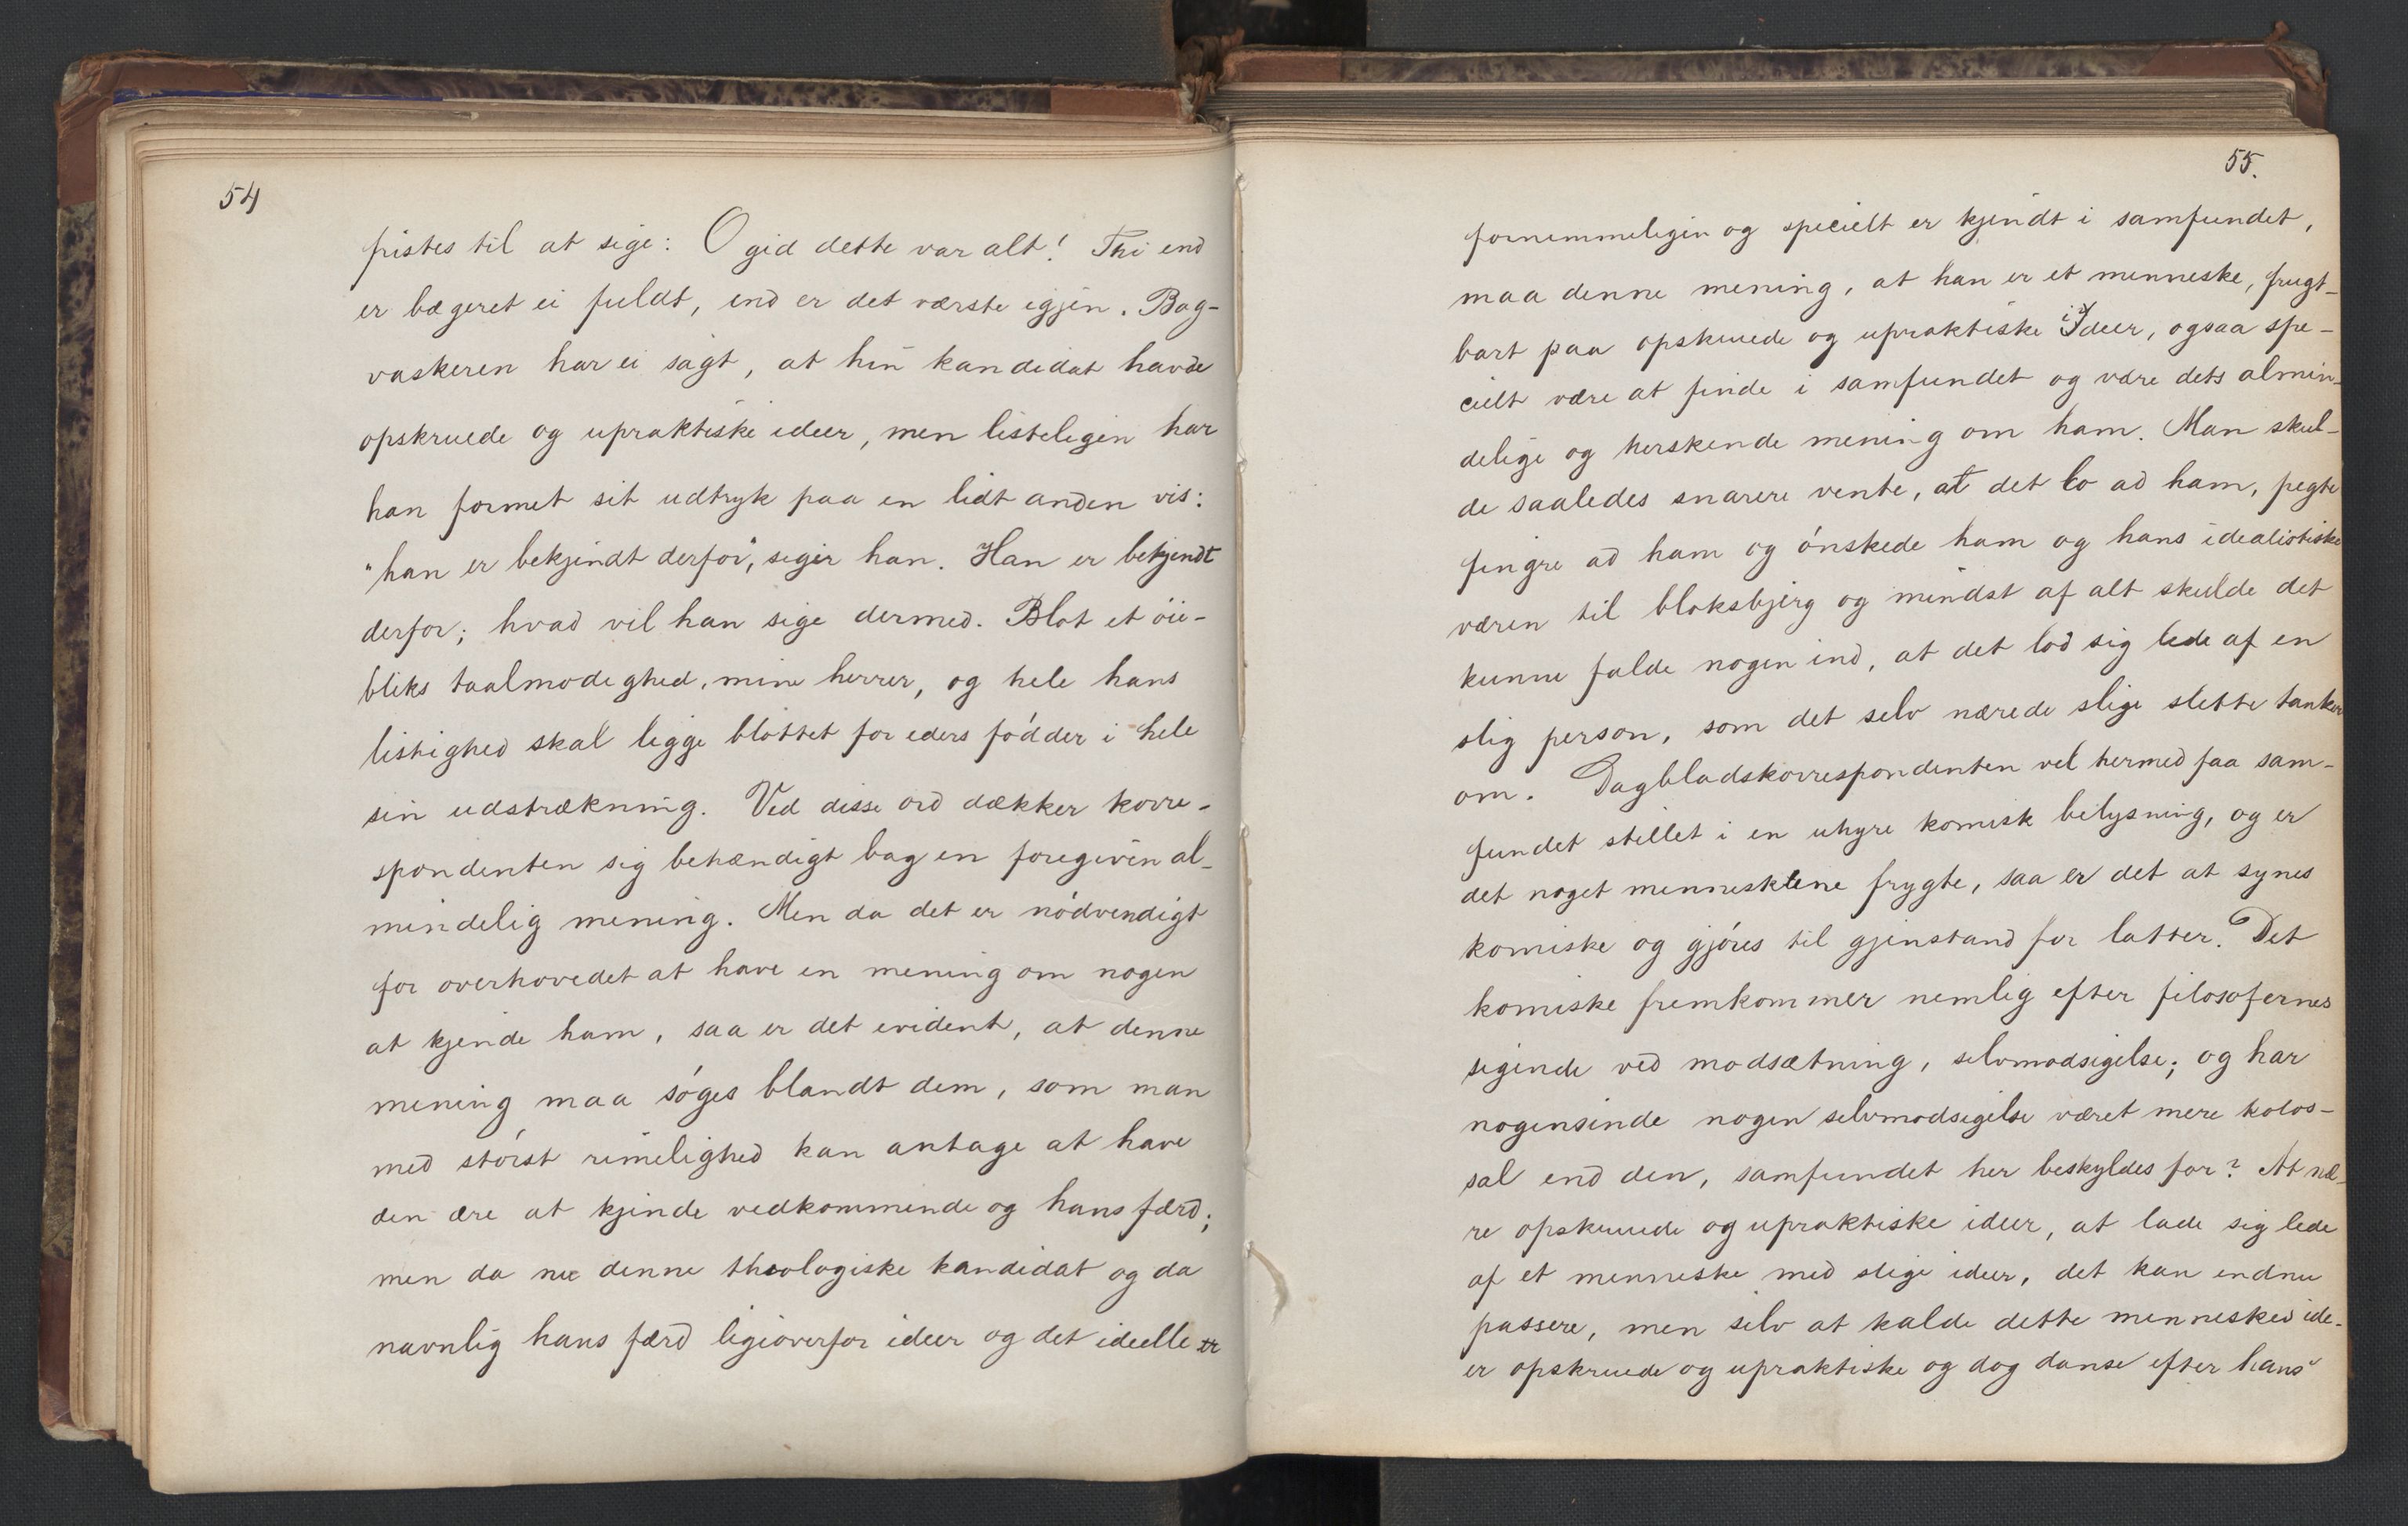 54
fristes til at sige: O gid dette var alt! Thi end
er bægeret ei fuldt, end er det værste igjen. Bag-
vaskeren har ei sagt, at hin kandidat havde
opskruede og upraktiske ideer, men listeligen har
han formet sit udtryk paa en lidt anden vis:
"han er bekjendt derfor", siger han. Han er bekjendt
derfor; hvad vil han sige dermed. Blot et öie-
bliks taalmodighed, mine herrer, og hele hans
listighed skal ligge blottet for eders födder i hele
sin udstrækning. Ved disse ord dækker korre-
spondenten sig behændigt bag en foregiven al-
mindelig mening. Men da det er nödvendigt
for overhovedet at have en mening om nogen
at kjende ham, saa er det evident, at denne
mening maa söges blandt dem, som man
med störst rimelighed kan antage at have
den ære at kjende vedkommende og hans færd;
men da nu denne theologiske kandidat og da
navnlig hans færd ligeoverfor ideer og det ideelle er
55.
fornemmeligen og specielt er kjendt i samfundet,
maa denne mening, at han er et menneske, frugt-
bart paa opskruede og upraktiske ideer, ogsaa spe-
cielt være at finde i samfundet og være dets almin-
delige og herskende mening om ham. Man skul-
de saaledes snarere vente, at det lo ad ham, pegte
fingre ad ham og önskede ham og hans idealistiske
væren til bloksbjerg og mindst af alt skulde det
kunne falde nogen ind, at det lod sig lede af en
slig person, som det selv nærede slige slette tanker
om. Dagbladskorrespondenten vil hermed faa sam-
fundet stillet i en uhyre komisk belysning, og er
det noget menneskene frygte, saa er det at synes
komiske og gjöres til gjenstand for latter. Det
komiske fremkommer nemlig efter filosofernes
sigende ved modsætning, selvmodsigelse; og har
nogensinde nogen selvmodsigelse været mere kolos-
sal end den, samfundet her beskyldes for? At næ-
re opskruede og upraktiske ideer, at lade sig lede
af et menneske med slige ideer, det kan endnu
passere, men selv at kalde dette menneskes ide-
er opskruede og upraktiske og dog danse efter hans